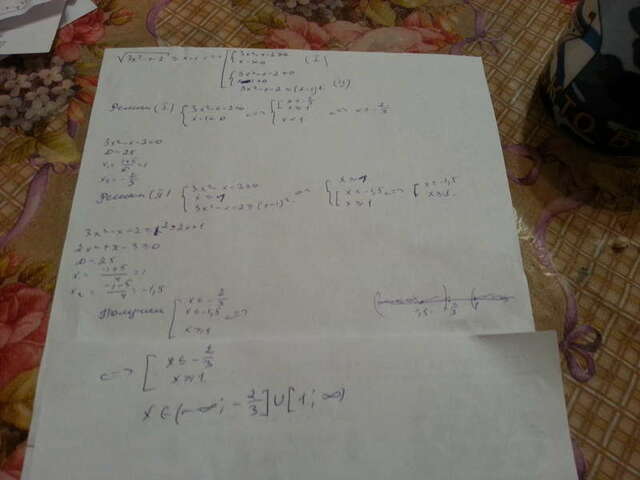 √3x²-x-2 ≥ x-1 <=> [ { 3x²-x-2≥0
x-1<0 (I)
{ 3x²-x-2≥0
x-1≥0 (II)
3x²-x-2≥(x-1)²
Решаем (I) { 3x²-x-2≥0
x-1<0 <=> { [ x≤-2/3
x≥1
x<1 <=> x≤-2/3
3x²-x-2=0
D=25
x₁=(1+5)/6=1
x₂=-2/3
Решаем (II) { 3x²-x-2≥0
x≥1
3x²-x-2≥(x-1)² <=> { x≥1
[ x≤-1,5
x≥1 <=> [ x≤-1,5
x≥1
3x²-x-2≥x²-2x+1
2x²+x-3≥0
D=25
x₁=(-1+5)/4=1
x₂=(-1-5)/4=-1,5
Получаем [ x≤-2/3
x≤-1,5
x≥1 <=>
<=> [ x≤-2/3
x≥1
x∈(-∞;-2/3]∪[1;∞)
КТО